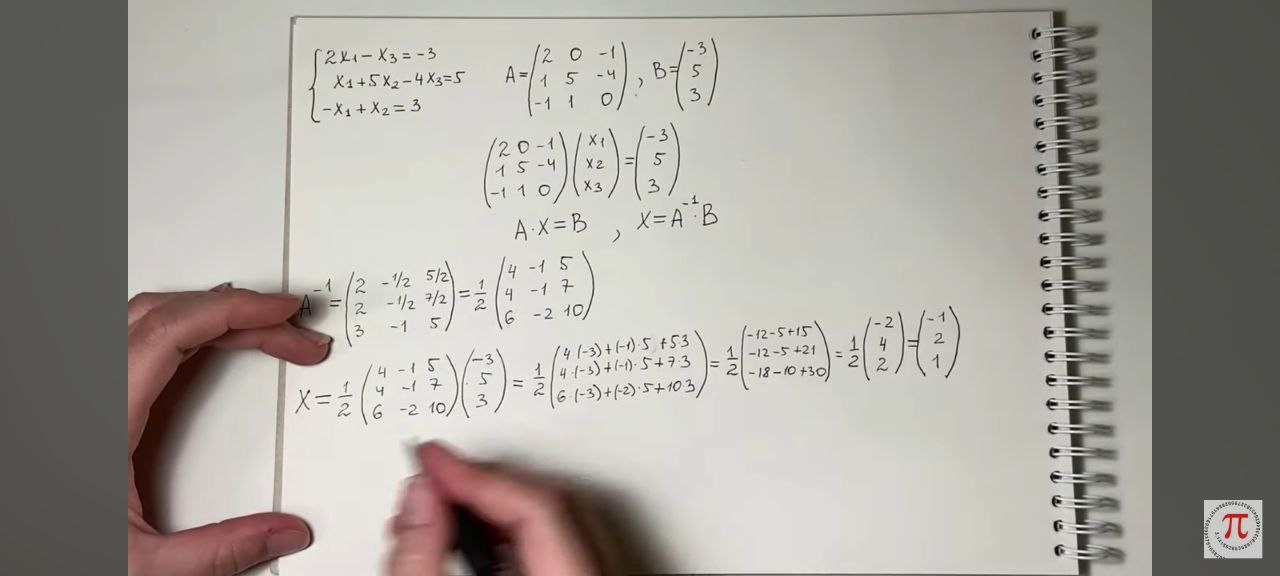 {2x₁ − x₃ = −3
x₁ + 5x₂ − 4x₃ = 5
−x₁ + x₂ = 3
A = (2 0 −1
1 5 −4
−1 1 0), B = (−3
5
3)
(2 0 −1
1 5 −4
−1 1 0) (x₁
x₂
x₃) = (−3
5
3)
A·X = B , X = A⁻¹·B
A⁻¹ = (2 −1/2 5/2
2 −1/2 7/2
3 −1 5) = 1/2 (4 −1 5
4 −1 7
6 −2 10)
X = 1/2 (4 −1 5
4 −1 7
6 −2 10) (−3
5
3) = 1/2 (4·(−3)+(−1)·5+5·3
4·(−3)+(−1)·5+7·3
6·(−3)+(−2)·5+10·3) = 1/2 (−12−5+15
−12−5+21
−18−10+30) = 1/2 (−2
4
2) = (−1
2
1)
π